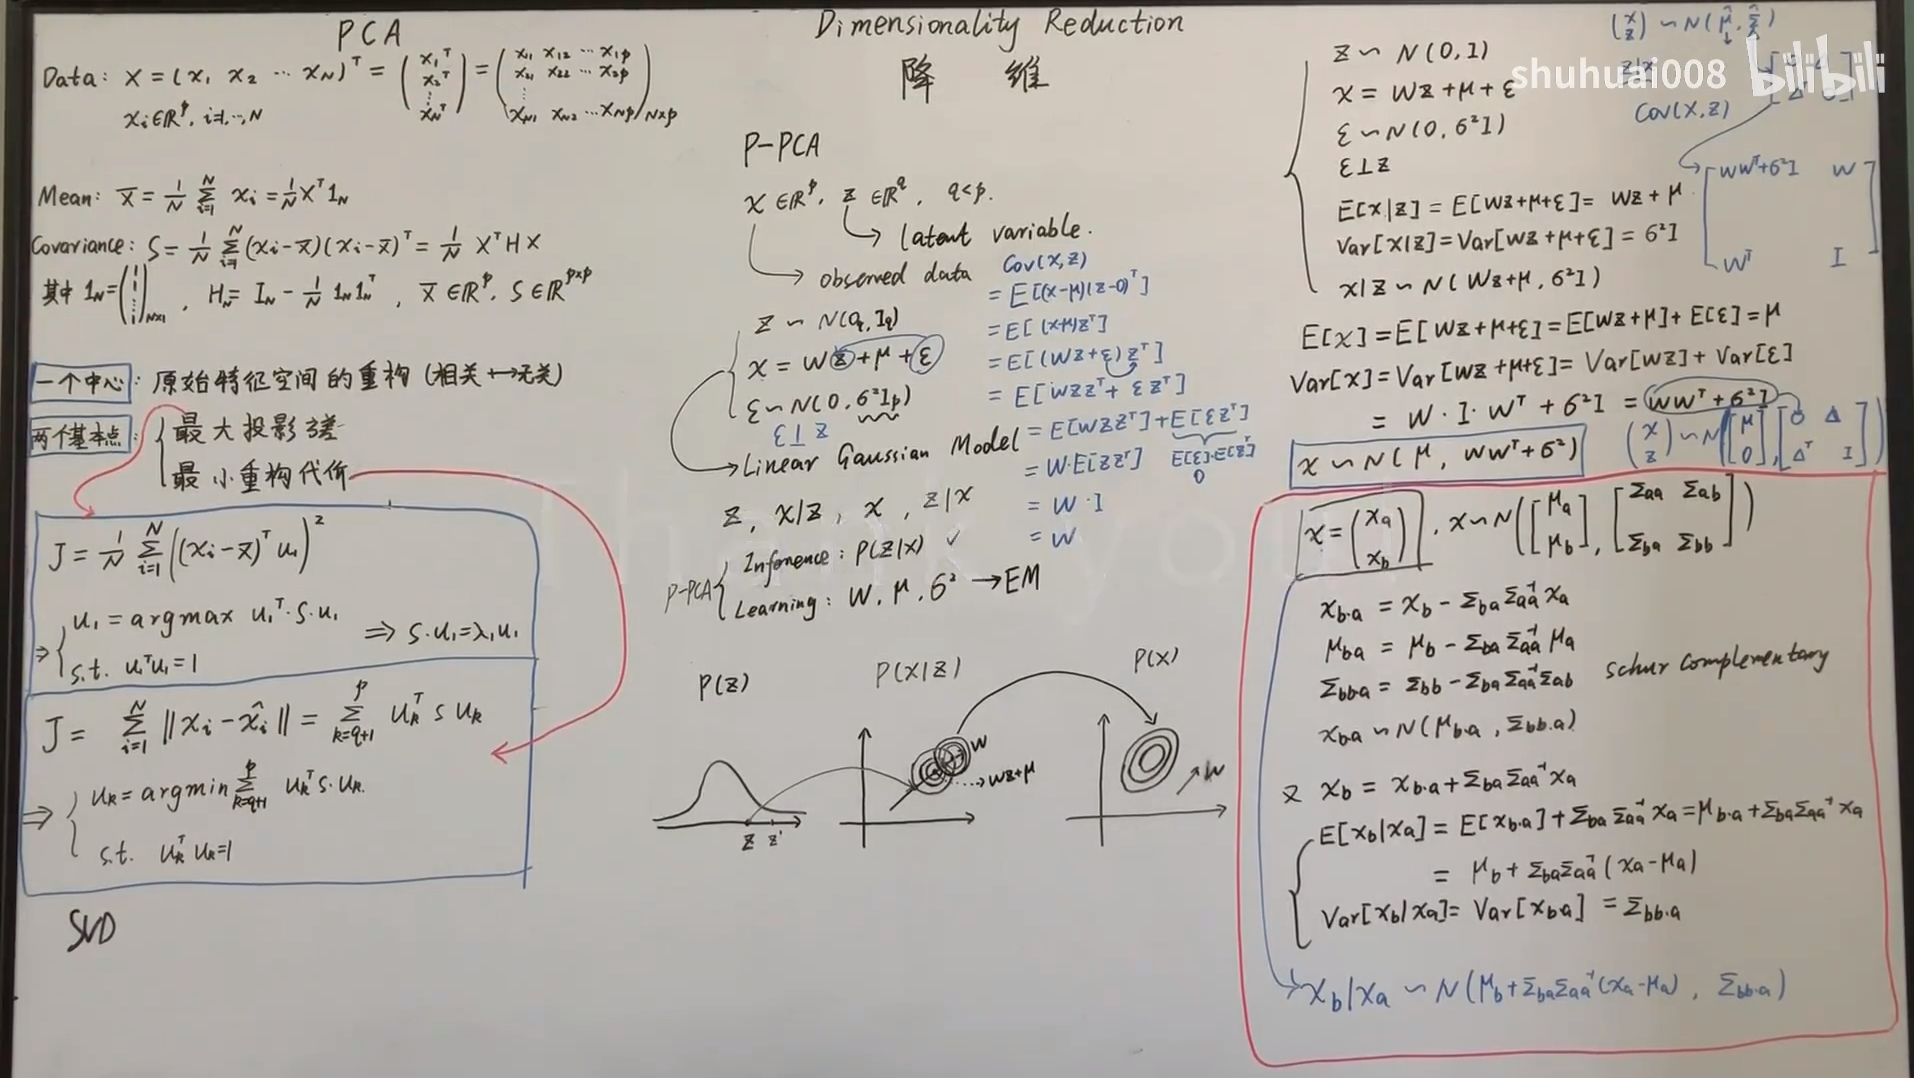 PCA
Data: X = (x₁ x₂ ⋯ x_N)ᵀ = (x₁ᵀ x₂ᵀ ⋮ x_Nᵀ) = (x₁₁ x₁₂ ⋯ x₁p
x₂₁ x₂₂ ⋯ x₂p
⋮
x_N1 x_N2 ⋯ x_Np)_N×p
xᵢ∈ℝᵖ, i=1,⋯,N
Mean: x̄ = 1/N Σᵢ₌₁ᴺ xᵢ = 1/N Xᵀ1_N
Covariance: S = 1/N Σᵢ₌₁ᴺ (xᵢ-x̄)(xᵢ-x̄)ᵀ = 1/N XᵀHX
其中 1_N = (1 1 ⋮ 1)_N×1, H_N = I_N - 1/N 1_N 1_Nᵀ, x̄ ∈ℝᵖ, S∈ℝᵖˣᵖ
一个中心: 原始特征空间的重构 (相关 ↔ 无关)
两个基本点: { 最大投影
最小重构代价
J = 1/N Σᵢ₌₁ᴺ ((xᵢ-x̄)ᵀ u₁)²
⇒ { u₁ = argmax u₁ᵀ·S·u₁
s.t. u₁ᵀu₁=1
⇒ S·u₁=λ₁u₁
J = Σᵢ₌₁ᴺ ‖xᵢ - x̂ᵢ‖ = Σ_k=q+1^p u_kᵀ S u_k
⇒ { u_k = argmin Σ_k=q+1^p u_kᵀ S·u_k
s.t. u_kᵀ u_k=1
SVD
Dimensionality Reduction
降 维
P-PCA
x ∈ℝᵖ, z ∈ℝ^q, q<p.
→ latent variable.
→ observed data
z ∽ N(0_q, I_q)
x = Wz+μ+ε
ε∽N(0, σ²I_p)
ε⊥z
→ Linear Gaussian Model
z, x|z, x, z|x
P-PCA { Inference: P(z|x) ✓
Learning: W, μ, σ² → EM
Cov(x,z)
= E[(x-μ)(z-0)ᵀ]
= E[(x-μ)zᵀ]
= E[(Wz+ε)zᵀ]
= E[Wzzᵀ + εzᵀ]
= E[Wzzᵀ] + E[εzᵀ]
E[ε]·E[zᵀ]
0
= W·E[zzᵀ]
= W·I
= W
P(z)
z z'
P(x|z)
W
→ Wz+μ
P(x)
W
Thank you
z ∽ N(0, I)
x = Wz+μ+ε
ε∽N(0, σ²I)
ε⊥z
E[x|z] = E[Wz+μ+ε] = Wz+μ
Var[x|z] = Var[Wz+μ+ε] = σ²I
x|z ∽ N(Wz+μ, σ²I)
E[x] = E[Wz+μ+ε] = E[Wz+μ] + E[ε] = μ
Var[x] = Var[Wz+μ+ε] = Var[Wz] + Var[ε]
= W·I·Wᵀ + σ²I = WWᵀ+σ²I
x ∽ N(μ, WWᵀ+σ²I)
(x z) ∽ N(μ̂, Σ̂)
z|x
shuhuai008 bilibili
Cov(x,z)
[WWᵀ+σ²I W
Wᵀ I]
(x z) ∽ N([μ 0], [□ Δ
Δᵀ I])
x = (x_a x_b), x∽N([μ_a μ_b], [Σ_aa Σ_ab
Σ_ba Σ_bb])
x_b·a = x_b - Σ_ba Σ_aa⁻¹ x_a
μ_b·a = μ_b - Σ_ba Σ_aa⁻¹ μ_a
Σ_bb·a = Σ_bb - Σ_ba Σ_aa⁻¹ Σ_ab
schur complementary
x_b·a ∽ N(μ_b·a, Σ_bb·a)
又 x_b = x_b·a + Σ_ba Σ_aa⁻¹ x_a
E[x_b|x_a] = E[x_b·a] + Σ_ba Σ_aa⁻¹ x_a = μ_b·a + Σ_ba Σ_aa⁻¹ x_a
= μ_b + Σ_ba Σ_aa⁻¹ (x_a - μ_a)
Var[x_b|x_a] = Var[x_b·a] = Σ_bb·a
x_b|x_a ∽ N(μ_b + Σ_ba Σ_aa⁻¹ (x_a - μ_a), Σ_bb·a)